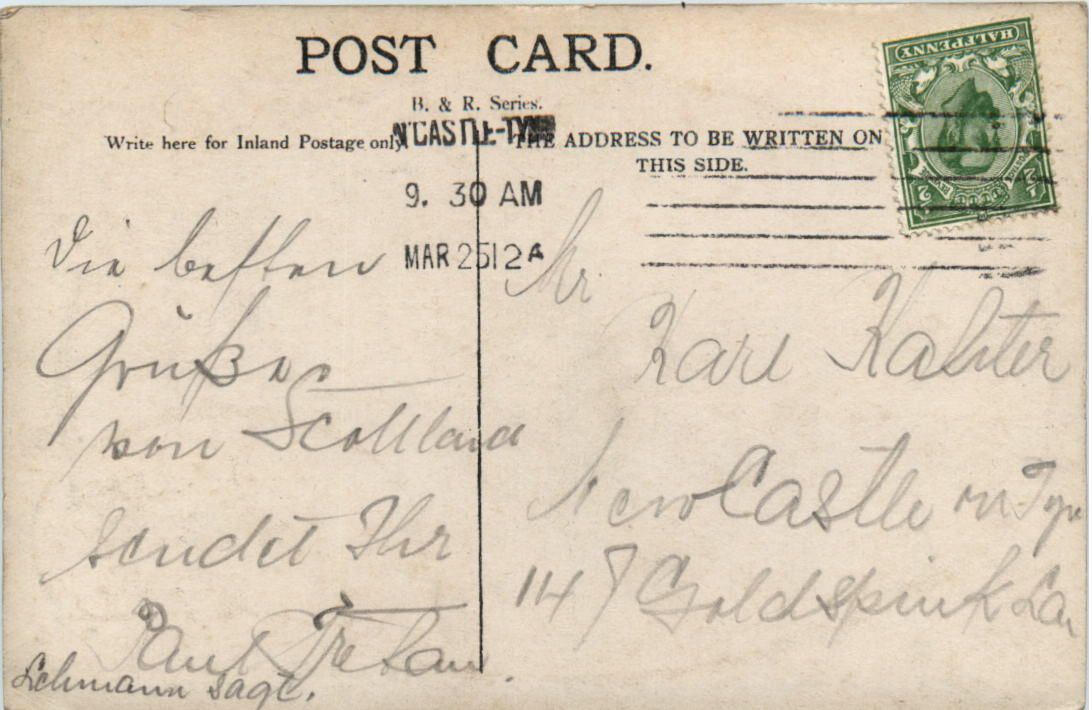 POST CARD.
B. & R. Series.
Write here for Inland Postage only
THE ADDRESS TO BE WRITTEN ON
THIS SIDE.
N'CASTLE-TYNE
9. 30 AM
MAR 25 12A
HALFPENNY
Die besten
Grüße
von Scottland
sendet Ihr
Paul
Lehmann sagt.
Mr
Karl
NewCastle on Tyn
147 Goldspink Lan